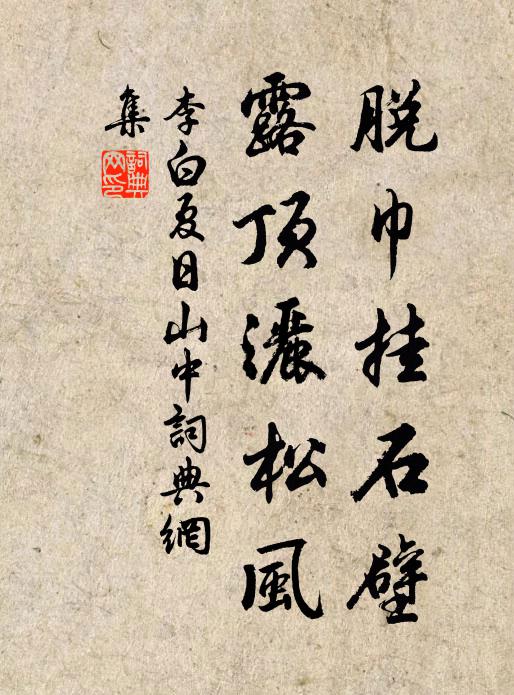 脱巾挂石壁
露頂灑松風
李白夏日山中詞典網
集
詞典
网印